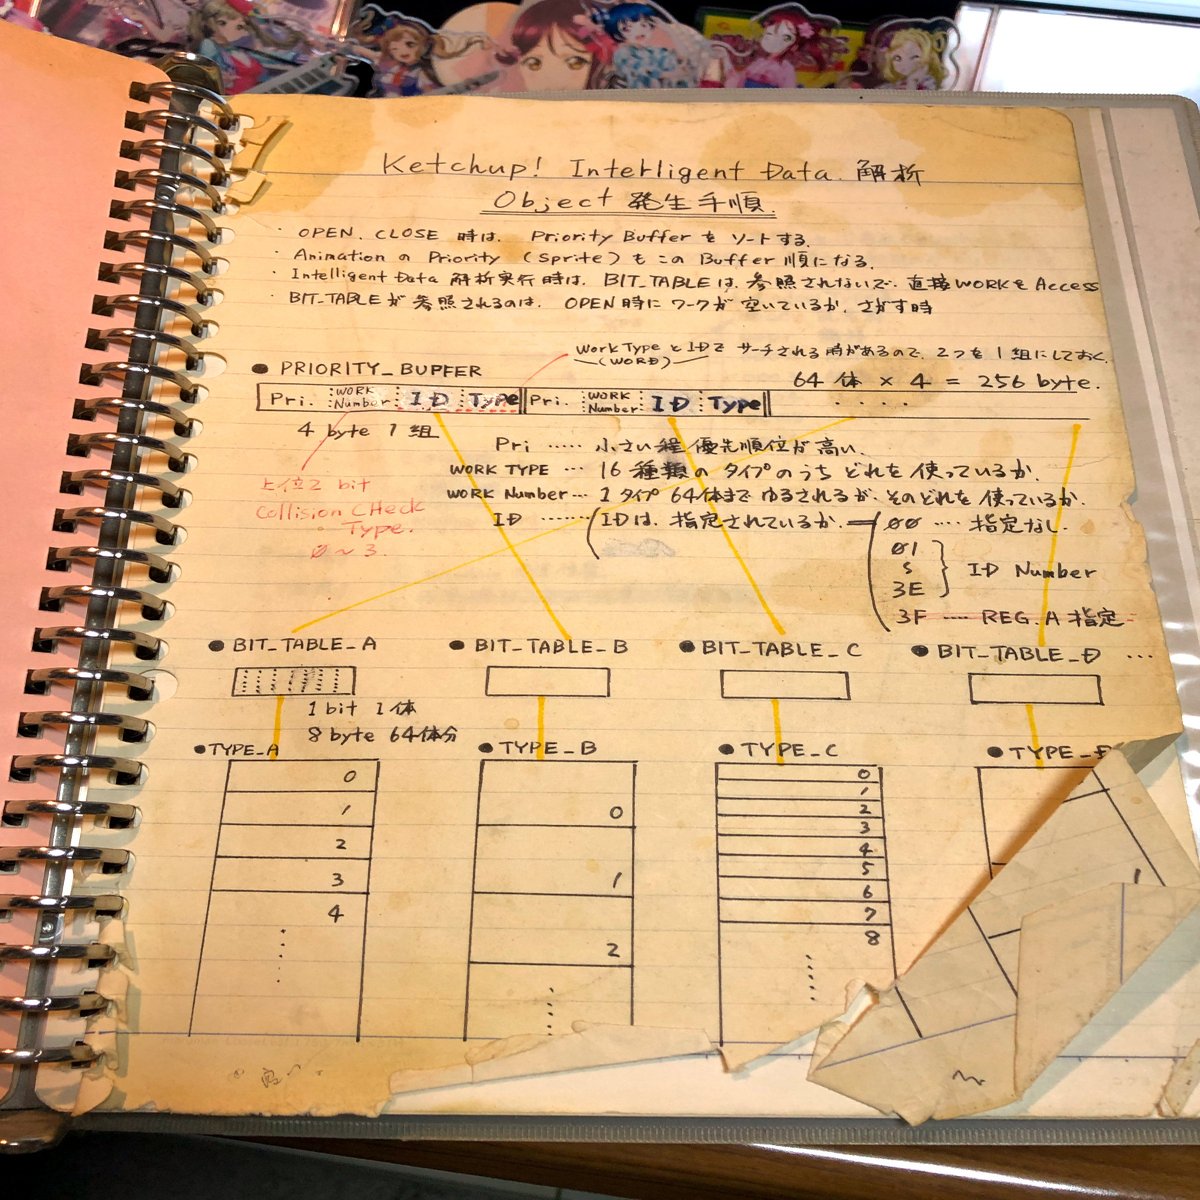 Ketchup! Interligent Data 解析
Object 発生手順.
・ OPEN, CLOSE 時は. Priority Buffer を ソートする.
・ Animation の Priority (Sprite) も この Buffer 順になる.
・ Intelligent Data 解析実行時は. BIT_TABLE は. 参照されないで. 直接 WORK を Access
・ BIT-TABLE が 参照されるのは. OPEN 時に ワークが 空いているか. さがす時
Work Type と ID で サーチされる 時があるので. 2つを 1組にしておく.
(WORD)
● PRIORITY_BUFFER
64 体 × 4 = 256 byte.
Pri. WORK Number ID Type Pri. WORK Number ID Type ・・・・
4 byte 1 組
Pri ・・・・・ 小さい程 優先順位が高い.
上位2 bit
Collision CHeck
Type.
0 ~ 3.
WORK TYPE ・・・ 16 種類の タイプのうち どれを 使っているか.
WORK Number ・・・ 1 タイプ 64体まで ゆるされるが. そのどれを 使っているか.
ID ・・・・・・ ( IDは. 指定されているか. 00 ・・・・ 指定なし.
01
S
3E
ID Number
3F ・・・・ REG. A 指定
● BIT_TABLE_A ● BIT_TABLE_B ● BIT_TABLE_C ● BIT_TABLE_D ・・・
1 bit 1 体
8 byte 64体分
● TYPE_A ● TYPE_B ● TYPE_C ● TYPE_D
0
1
2
3
4
0
1
2
0
1
2
3
4
5
6
7
8
1